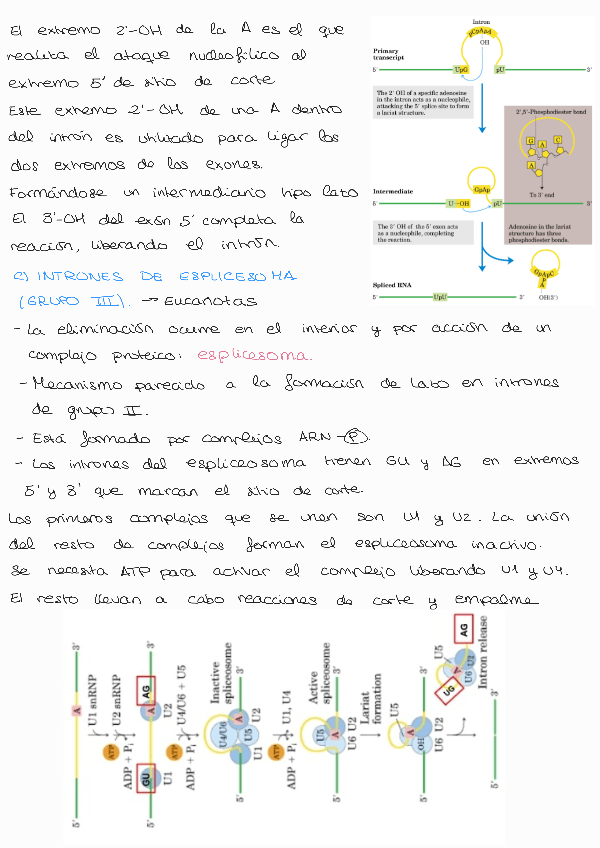 El extremo 2'-OH de la A es el que
realiza el ataque nucleofílico al
extremo 5' de sitio de corte
Este extremo 2'-OH de una A dentro
del intrón es utilizado para ligar los
dos extremos de los exones.
Formándose un intermediario tipo lazo
El 3'-OH del exón 5' completa la
reacción, liberando el intrón.
Intron
pCpApA
OH
Primary
transcript
5'
UpG
pU
3'
The 2' OH of a specific adenosine
in the intron acts as a nucleophile,
attacking the 5' splice site to form
a lariat structure.
2',5'-Phosphodiester bond
G
A
C
A
To 3' end
Adenosine in the lariat
structure has three
phosphodiester bonds.
Intermediate
GpAp
5'
U-OH
pU
3'
The 3' OH of the 5' exon acts
as a nucleophile, completing
the reaction.
GpApC
P
A
OH(3')
Spliced RNA
5'
UpU
3'
C) INTRONES DE ESPLICESOMA
(GRUPO III). → Eucariotas
- La eliminación ocurre en el interior y por acción de un
complejo proteico: esplicesoma.
- Mecanismo parecido a la formación de lazo en intrones
de grupo II.
- Está formado por complejos ARN-P.
- Los intrones del espliceosoma tienen GU y AG en extremos
5' y 3' que marcan el sitio de corte.
Los primeros complejos que se unen son U1 y U2. La unión
del resto de complejos forman el espliceosoma inactivo.
Se necesita ATP para activar el complejo liberando U1 y U4.
El resto llevan a cabo reacciones de corte y empalme
5'
A
3'
U1 snRNP
U2 snRNP
ATP
ADP + Pi
5'
GU
U1
A
U2
AG
3'
U4/U6 + U5
ATP
ADP + Pi
Inactive
spliceosome
5'
U4/U6
U5
A
U1
U2
3'
U1, U4
ATP
ADP + Pi
Active
spliceosome
5'
U5
A
U6 U2
3'
Lariat
formation
U5
A
OH
U6
U2
5'
3'
AG
U5
A
U2
U6
UG
Intron release
5'
3'